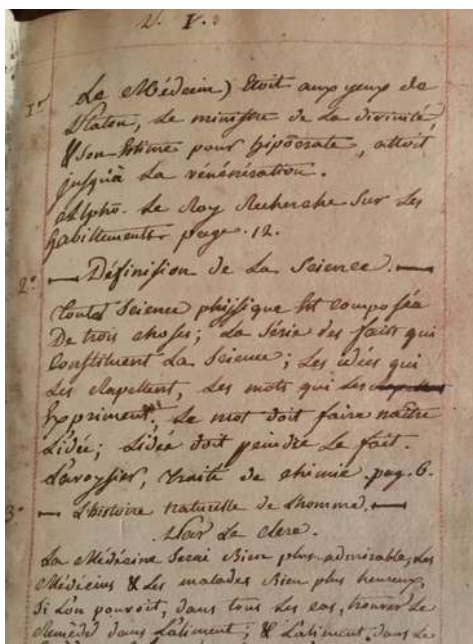 N. I.
1° Le Médecin) Etoit aux yeux de
Platon, Le ministre de La divinité,
& Son Estime pour hipocrate, alloit
jusqu'à La vénération.
Alpho. Le Roy Recherche Sur Les
habillements page. 12.
2° — Définition de La Science. —
Toute Science phisique Est composée
De trois choses; La Série des faits qui
Constituent La Science; Les idées qui
Les Rapellent, Les mots qui Les
Expriment. Le mot doit faire naître
Lidée; Lidée doit peindre Le fait.
Lavoysier, traité de chimie. pag. 6.
3° — Lhistoire naturelle de Lhomme. —
Par Le Clerc.
La Médecine Serai Bien plus admirable, Les
Médecins & Les malades Bien plus heureux,
Si Lon pouvoit, dans tous Les cas, trouver Le
Remède dans Laliment; & Laliment dans Le